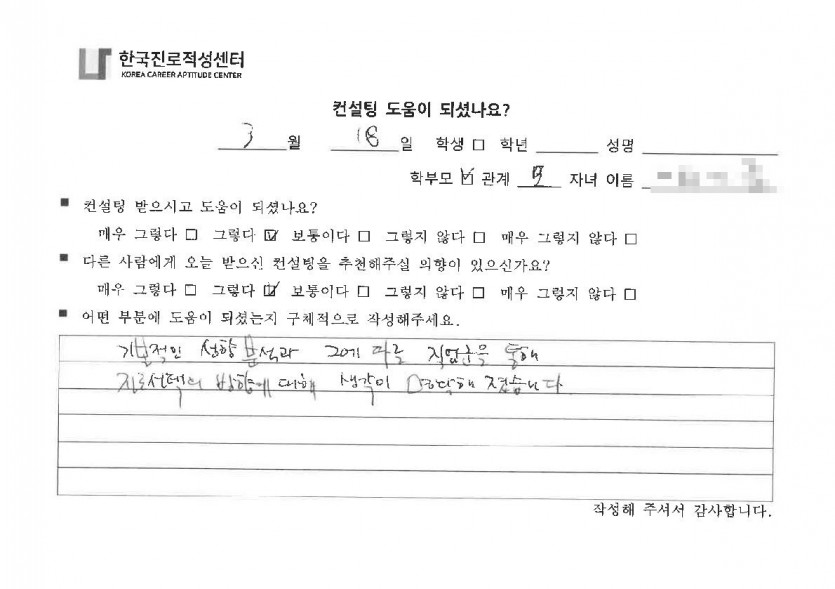 한국진로적성센터
KOREA CAREER APTITUDE CENTER
컨설팅 도움이 되셨나요?
3 월 18 일 학생 □ 학년 성명
학부모 ☑ 관계 모 자녀 이름
■ 컨설팅 받으시고 도움이 되셨나요?
매우 그렇다 □ 그렇다 ☑ 보통이다 □ 그렇지 않다 □ 매우 그렇지 않다 □
■ 다른 사람에게 오늘 받으신 컨설팅을 추천해주실 의향이 있으신가요?
매우 그렇다 □ 그렇다 ☑ 보통이다 □ 그렇지 않다 □ 매우 그렇지 않다 □
■ 어떤 부분에 도움이 되셨는지 구체적으로 작성해주세요.
기본적인 성향 분석과 그에 따른 직업군을 통해
진로선택의 방향에 대해 생각이 명확해 졌습니다
작성해 주셔서 감사합니다.